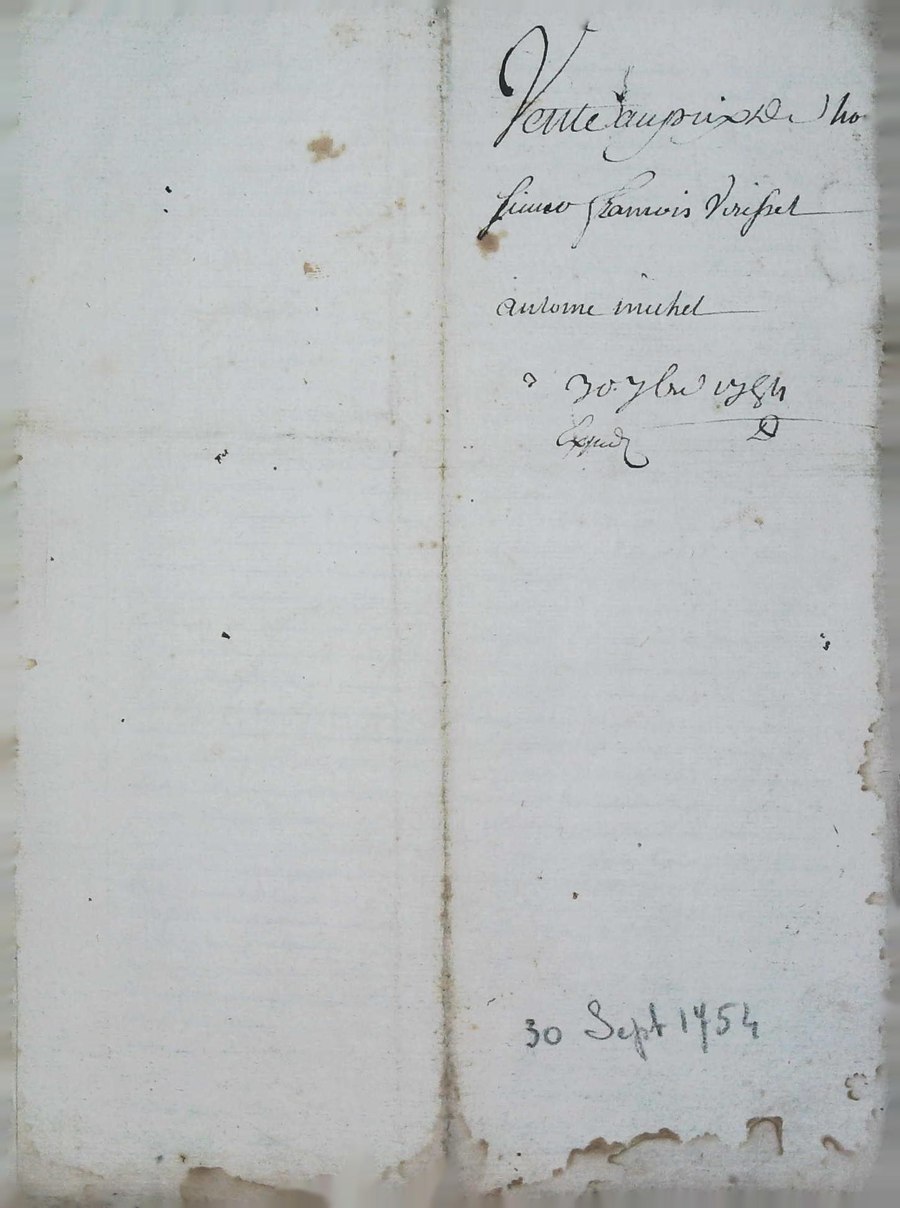 Vente au prix de
françois Virisset
antoine michel
30. 7bre 1754
Expedié
30 Sept 1754